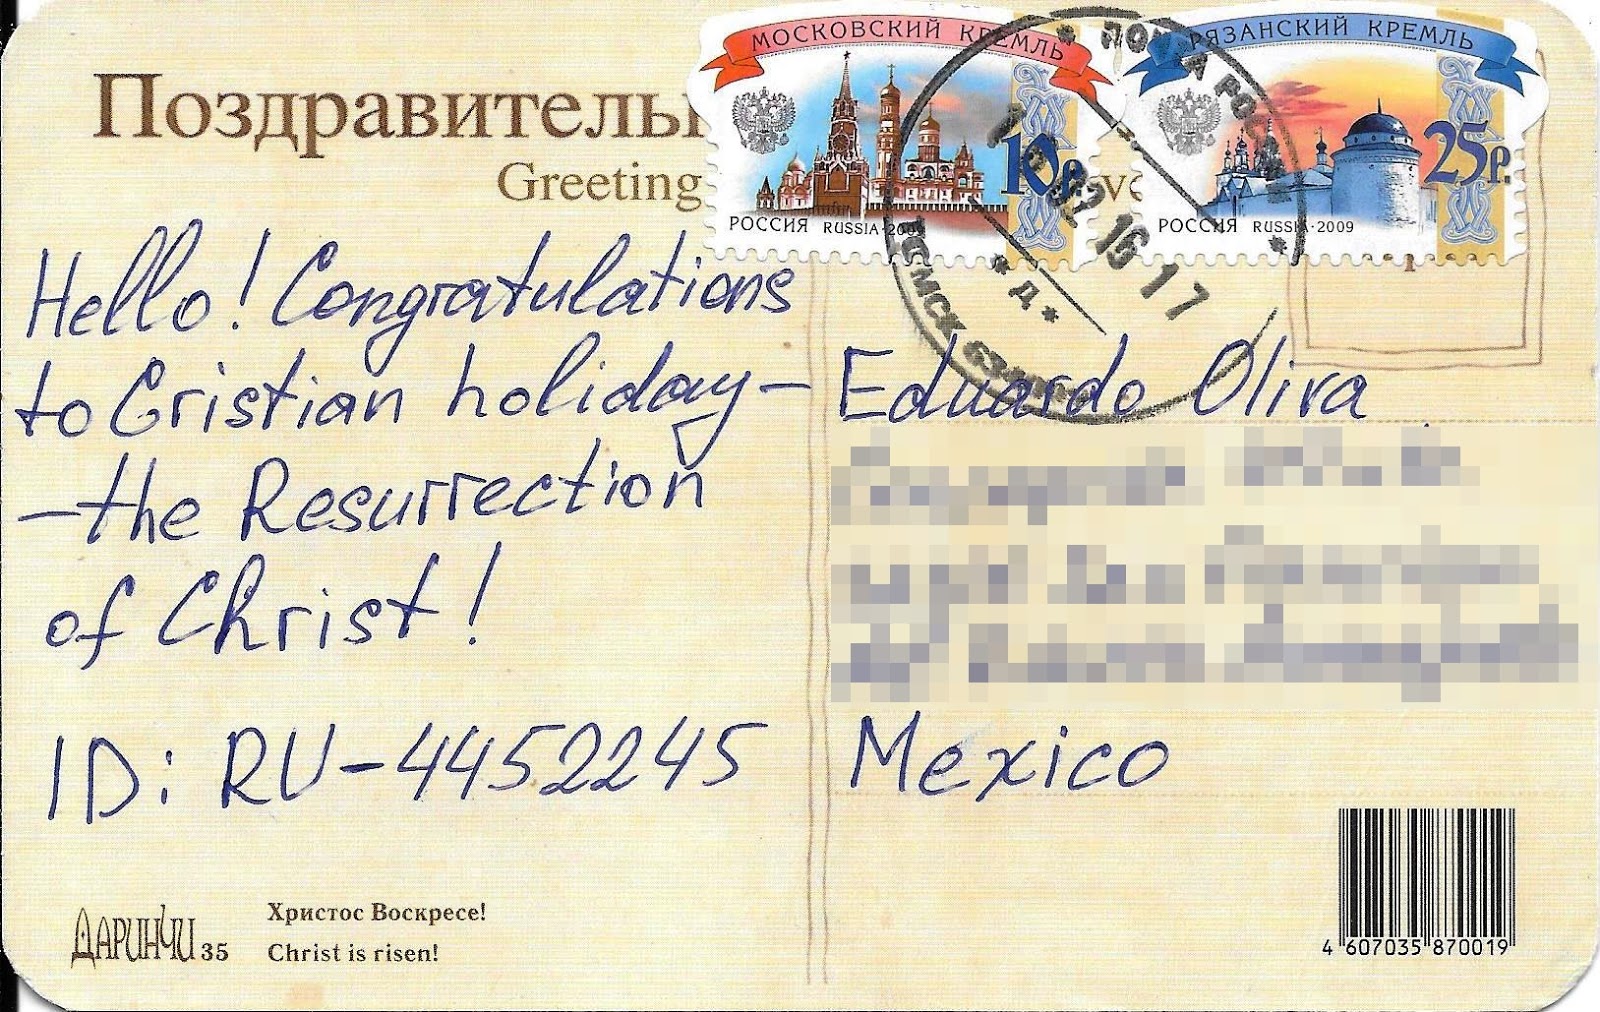 Поздравитель
Greeting
МОСКОВСКИЙ КРЕМЛЬ
10р.
РОССИЯ RUSSIA·2009
РЯЗАНСКИЙ КРЕМЛЬ
25р.
РОССИЯ RUSSIA·2009
02 16 17
* Д *
Hello! Congratulations
to Cristian holiday–
–the Resurrection
of Christ!
ID: RU-4452245
Eduardo Oliva
Mexico
ДАРИНЧИ 35
Христос Воскресе!
Christ is risen!
4 607035 870019